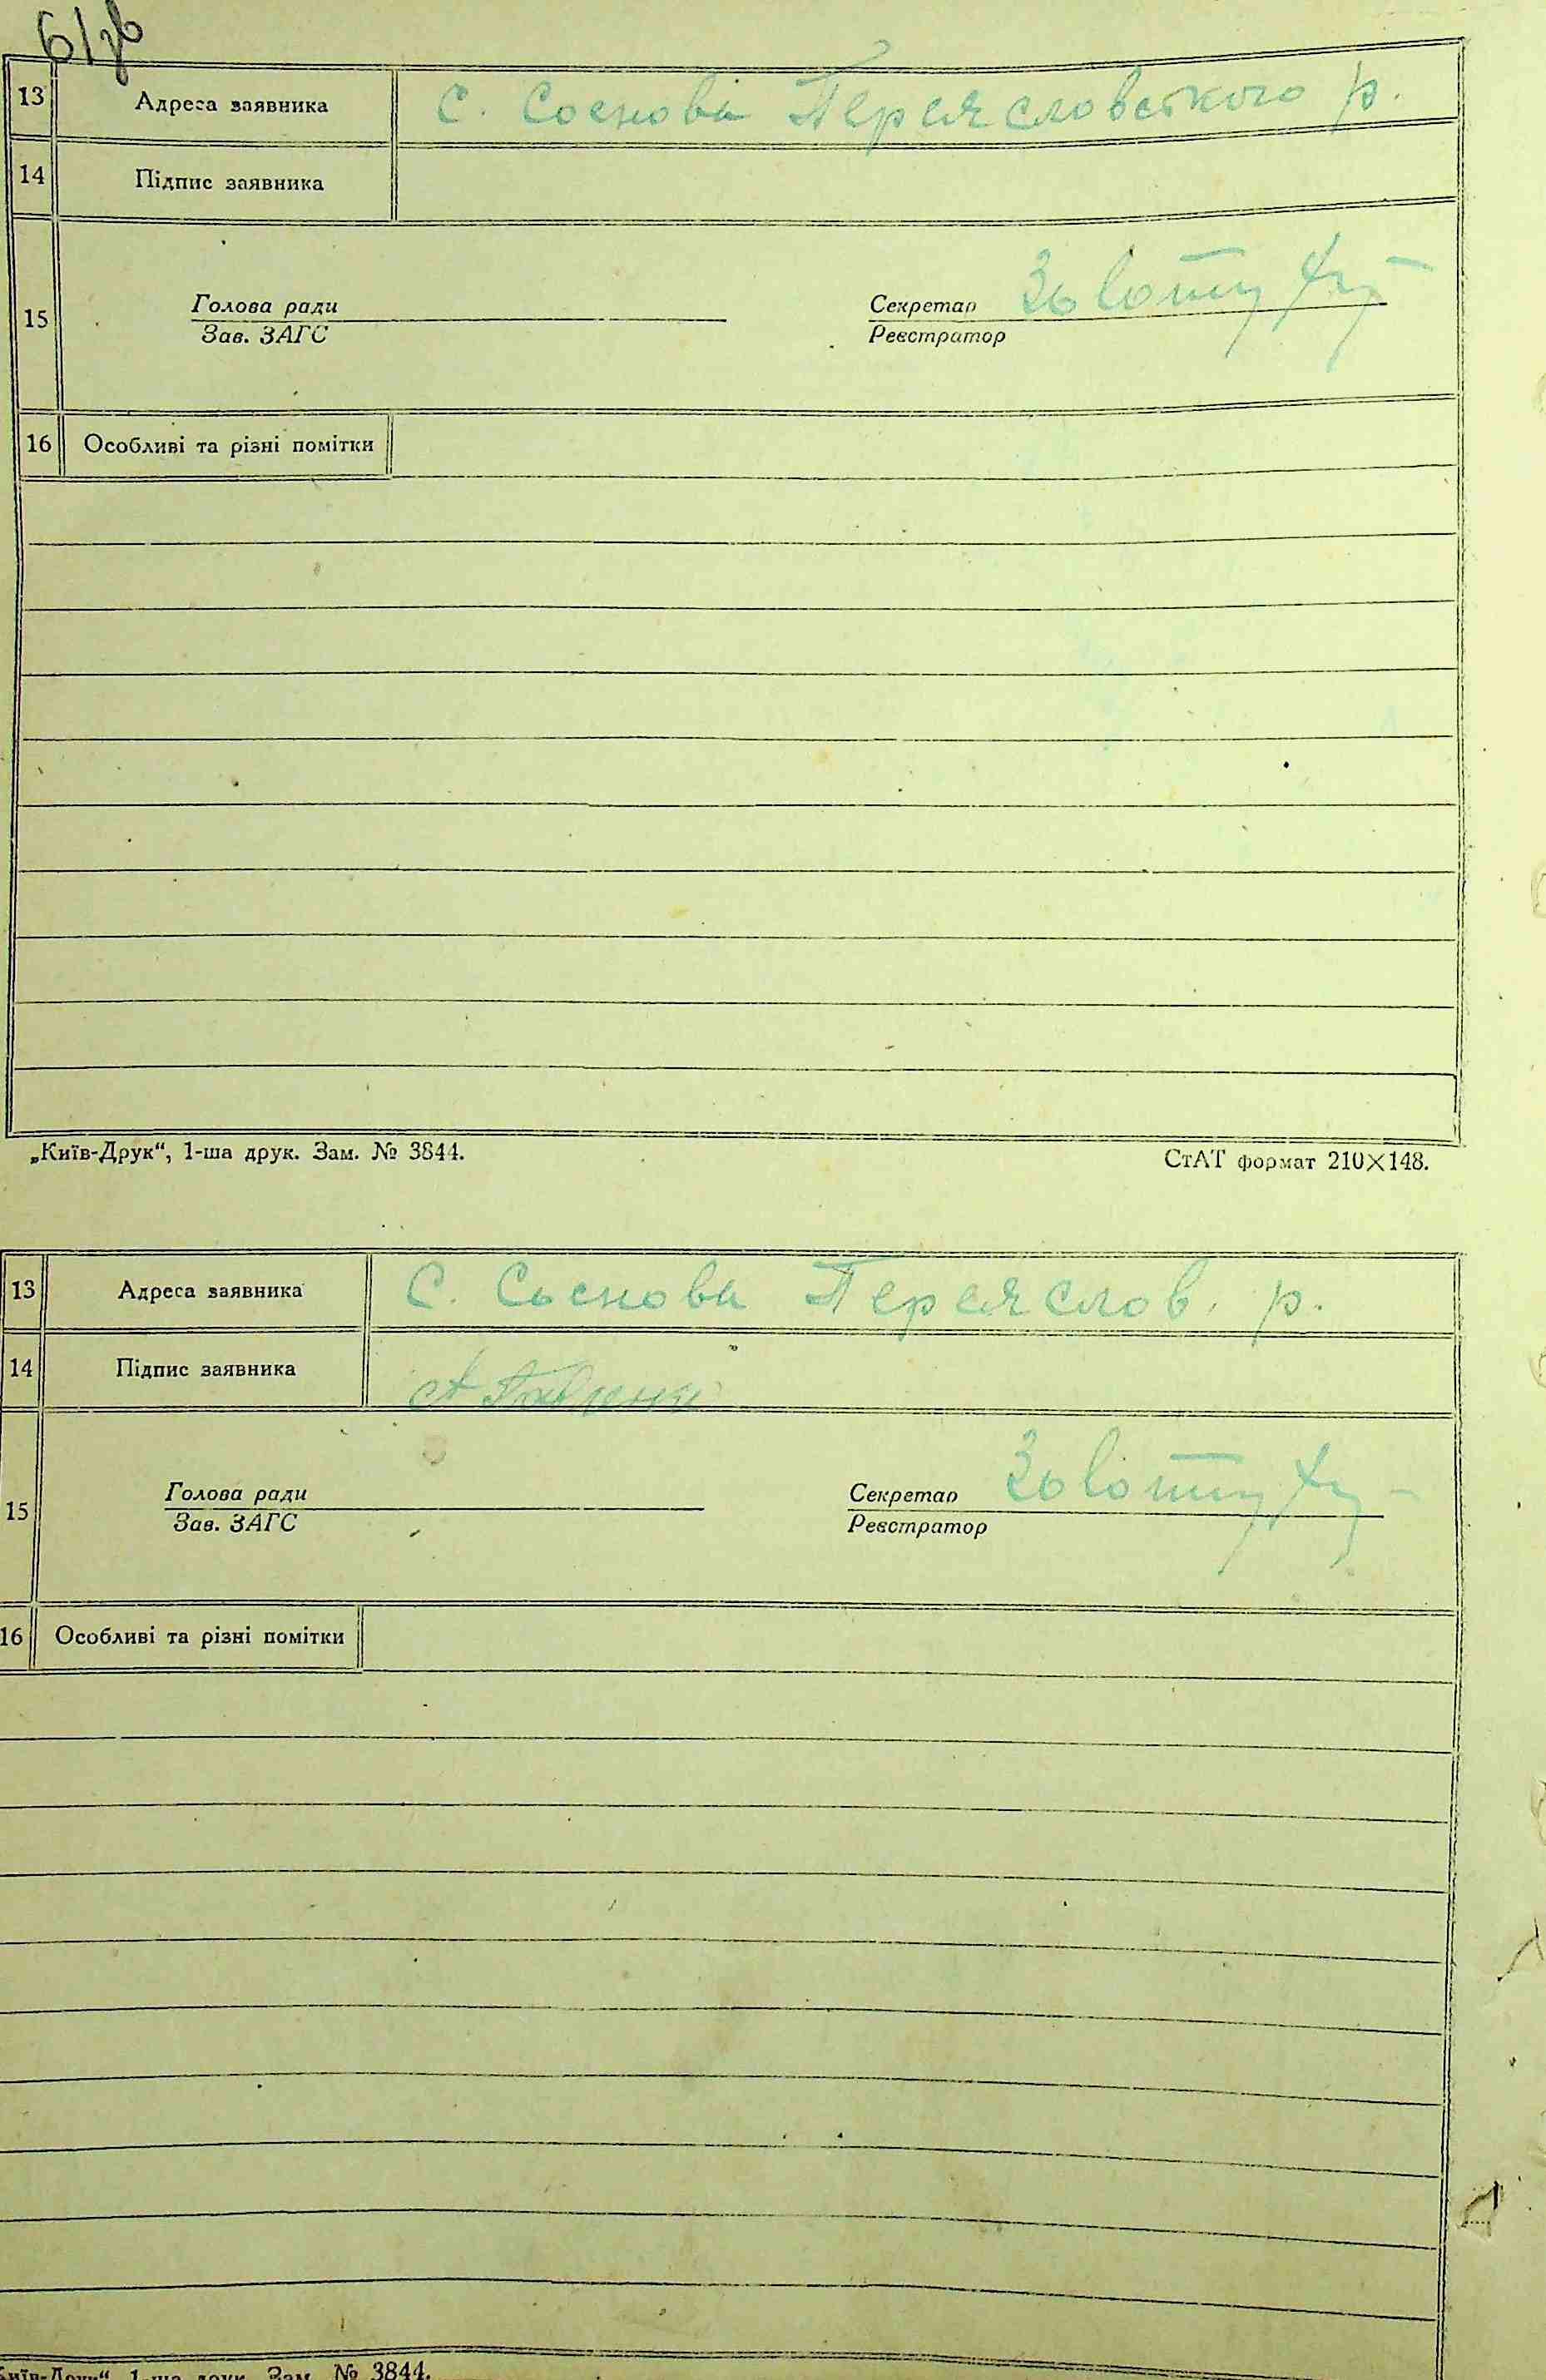 6/зв
13 Адреса заявника С. Соснова Переясловського р.
14 Підпис заявника
15 Голова ради Секретар
Зав. ЗАГС Реєстратор
16 Особливі та різні помітки
„Київ-Друк“, 1-ша друк. Зам. № 3844. СтАТ формат 210×148.
13 Адреса заявника С. Соснова Переяслов. р.
14 Підпис заявника
15 Голова ради Секретар
Зав. ЗАГС Реєстратор
16 Особливі та різні помітки
Київ-Друк“, 1-ша друк. Зам. № 3844.